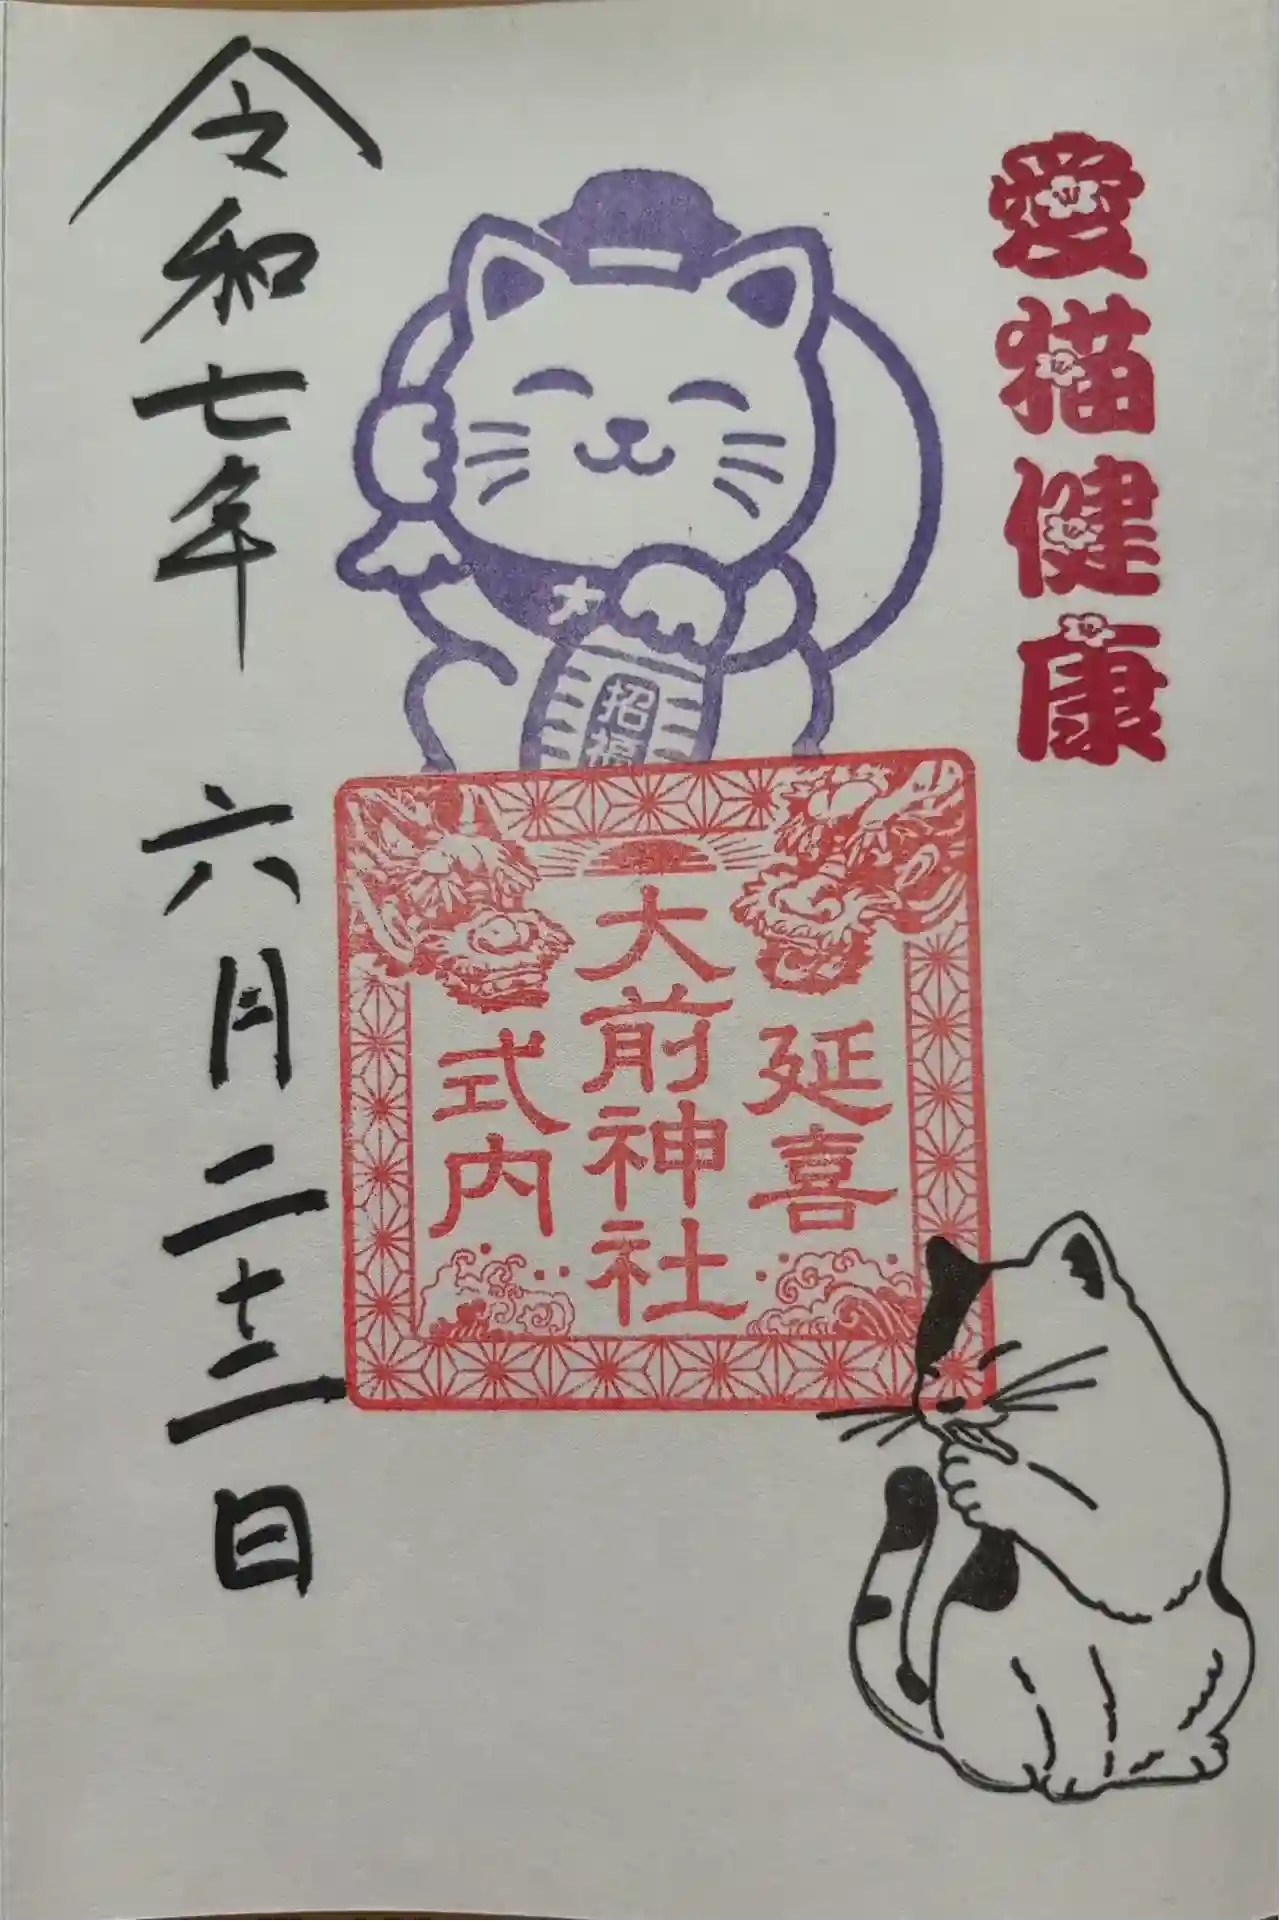 愛猫健康
大
招福
延喜
大前神社
式内
令和七年 六月二十二日